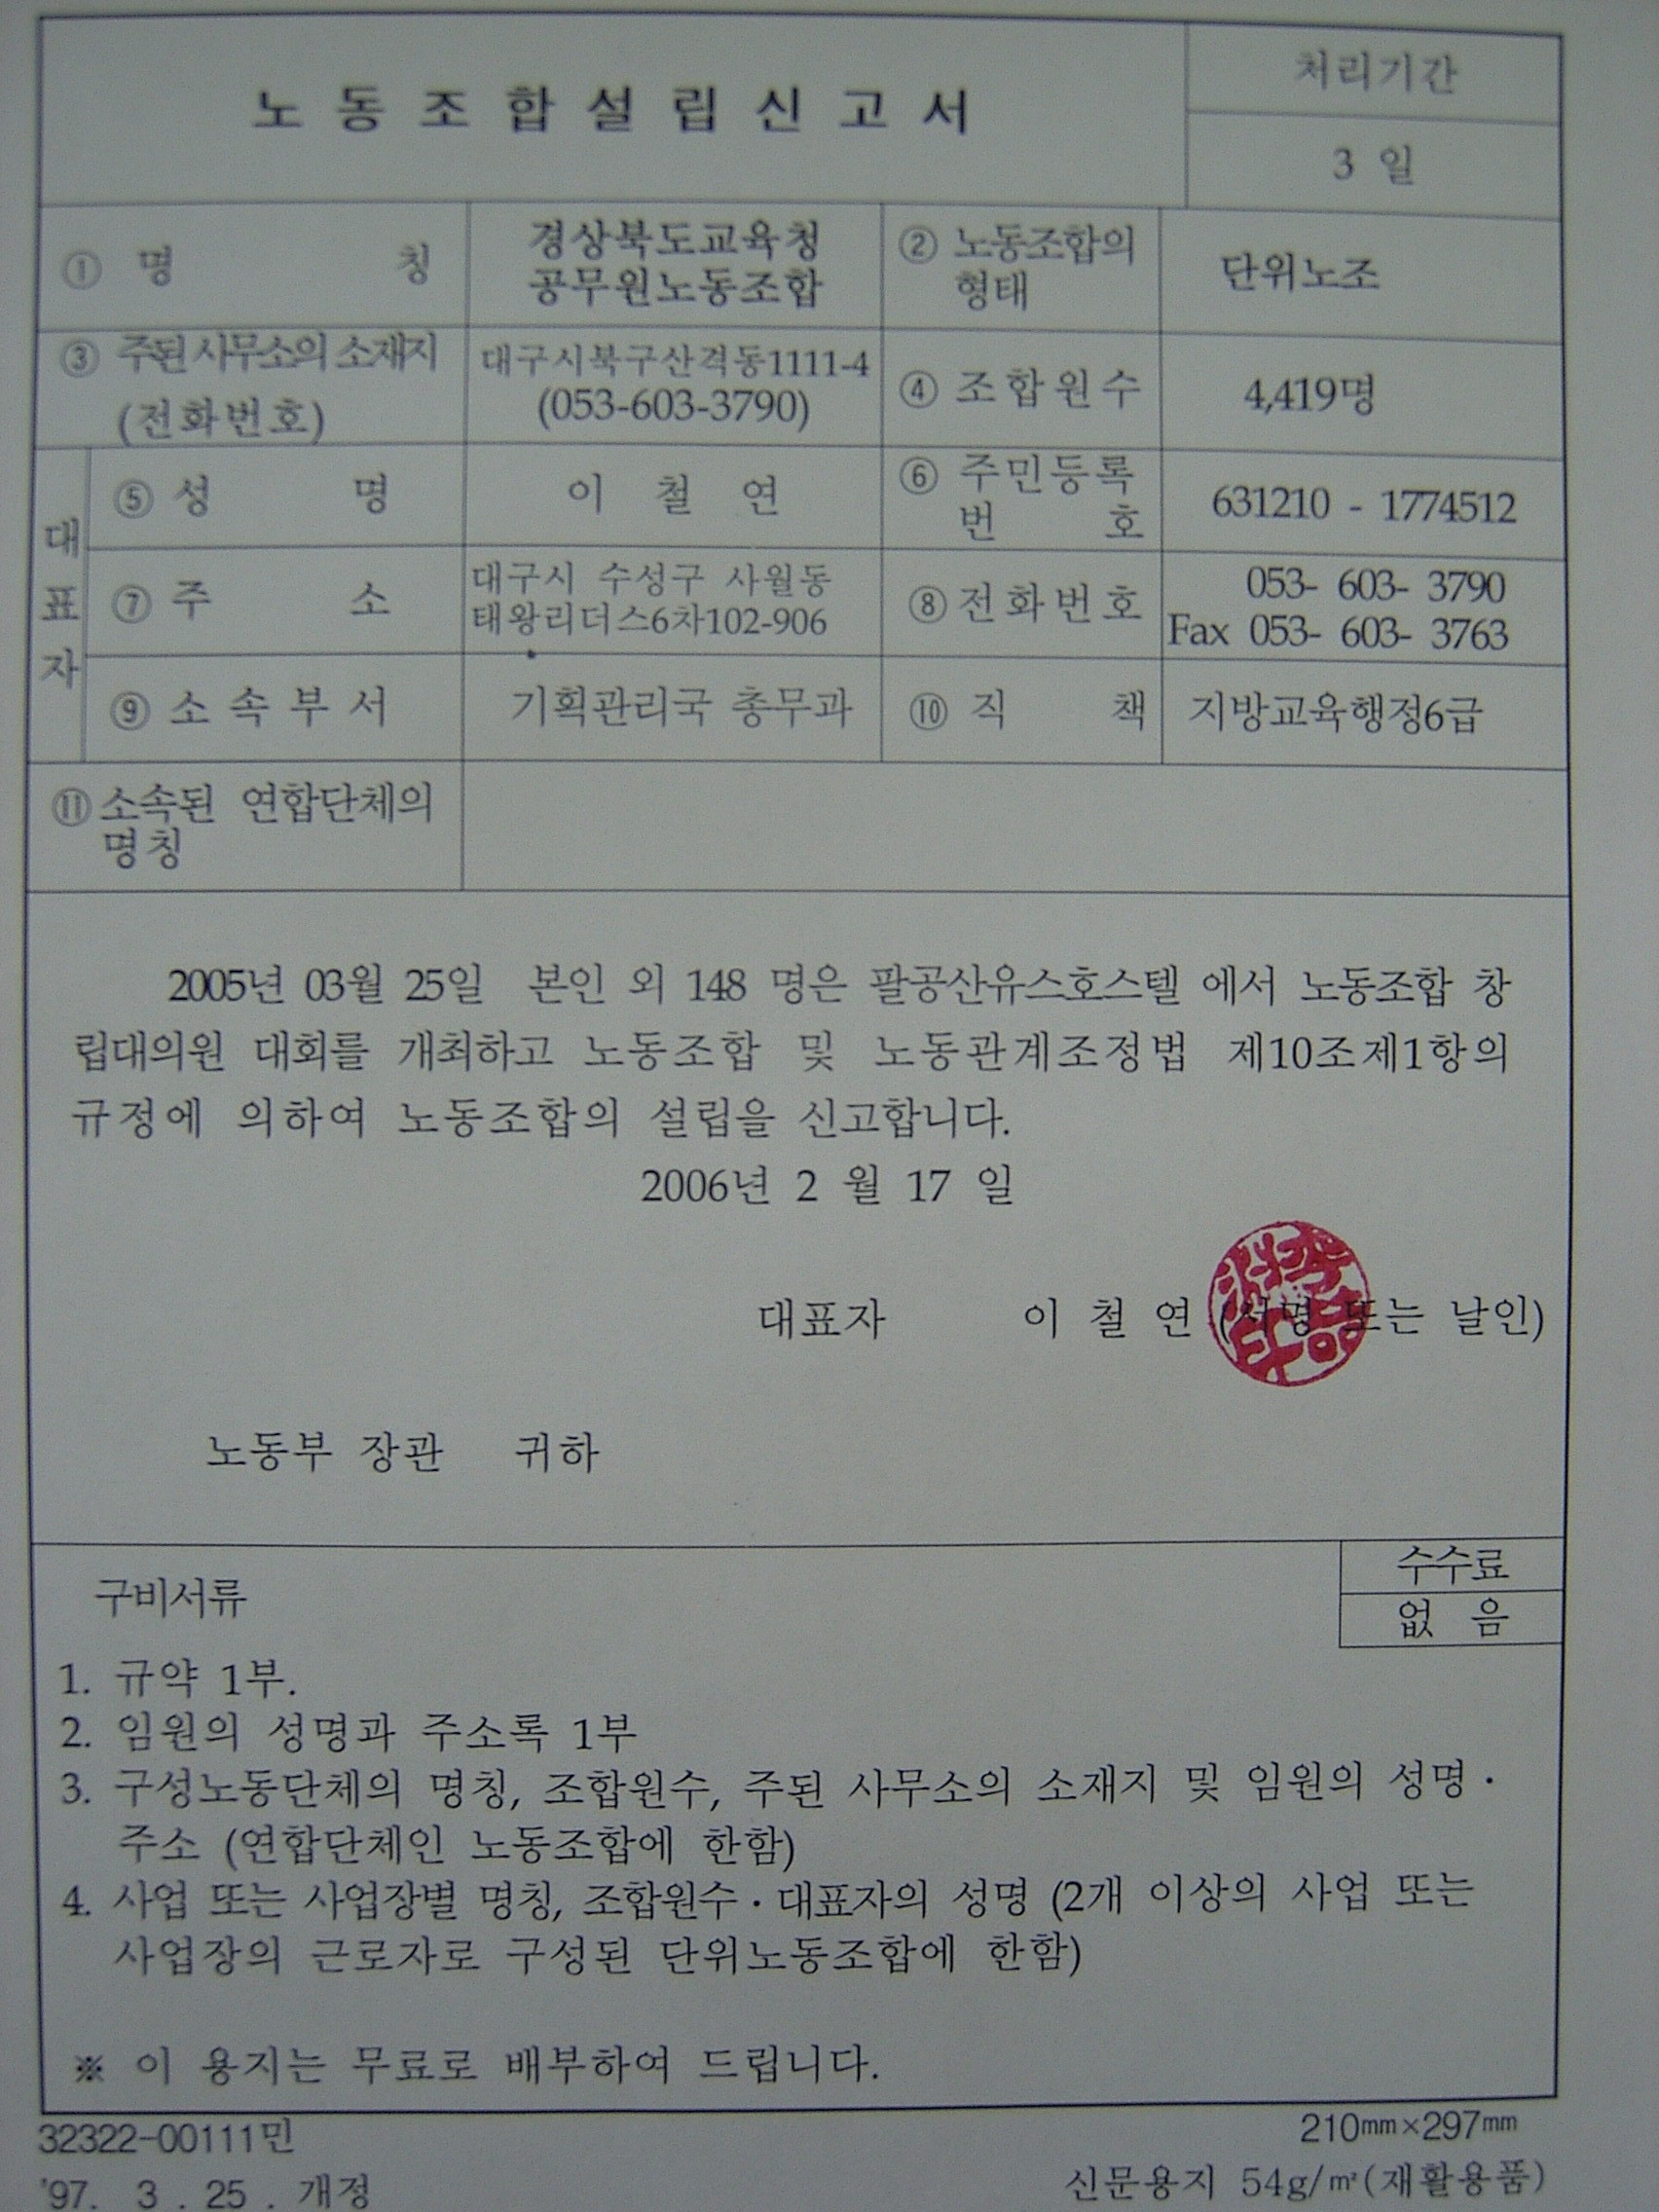 노동조합설립신고서
처리기간
3 일
① 명 칭
경상북도교육청
공무원노동조합
② 노동조합의
형태
단위노조
③ 주된 사무소의 소재지
(전화번호)
대구시북구산격동1111-4
(053-603-3790)
④ 조합원수
4,419명
대표자
⑤ 성 명
이 철 연
⑥ 주민등록
번 호
631210 - 1774512
⑦ 주 소
대구시 수성구 사월동
태왕리더스6차102-906
⑧ 전화번호
053- 603- 3790
Fax 053- 603- 3763
⑨ 소속부서
기획관리국 총무과
⑩ 직 책
지방교육행정6급
⑪ 소속된 연합단체의
명칭
2005년 03월 25일 본인 외 148 명은 팔공산유스호스텔 에서 노동조합 창
립대의원 대회를 개최하고 노동조합 및 노동관계조정법 제10조제1항의
규정에 의하여 노동조합의 설립을 신고합니다.
2006년 2 월 17 일
대표자 이 철 연 (서명 또는 날인)
노동부 장관 귀하
구비서류
수수료
없 음
1. 규약 1부.
2. 임원의 성명과 주소록 1부
3. 구성노동단체의 명칭, 조합원수, 주된 사무소의 소재지 및 임원의 성명·
주소 (연합단체인 노동조합에 한함)
4. 사업 또는 사업장별 명칭, 조합원수·대표자의 성명 (2개 이상의 사업 또는
사업장의 근로자로 구성된 단위노동조합에 한함)
※ 이 용지는 무료로 배부하여 드립니다.
32322-00111민
210㎜×297㎜
'97. 3 . 25 . 개정
신문용지 54g/㎡(재활용품)